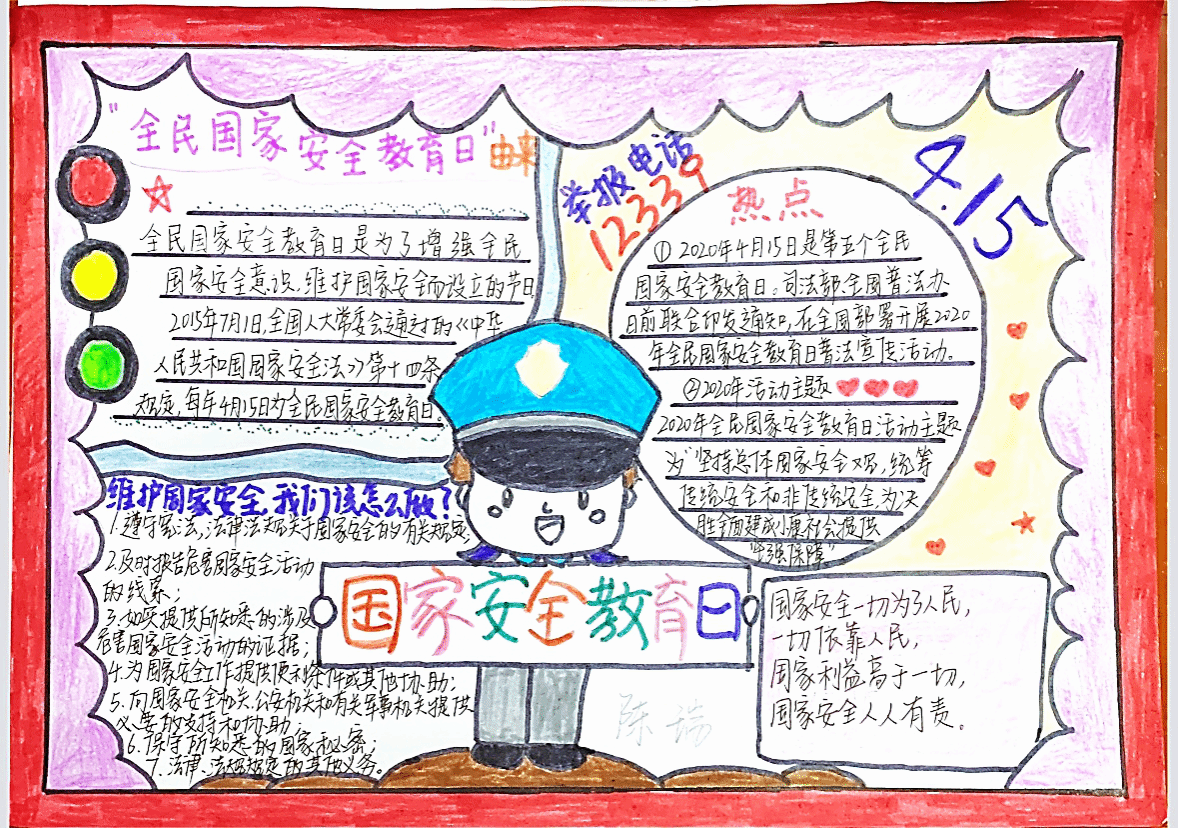 "全民国家安全教育日"由来
全民国家安全教育日是为了增强全民
国家安全意识,维护国家安全而设立的节日
2015年7月1日,全国人大常委会通过的《中华
人民共和国国家安全法》第十四条
规定,每年4月15日为全民国家安全教育日
举报电话
12339
4.15
热点
① 2020年4月15日是第五个全民
国家安全教育日。司法部、全国普法办
日前联合印发通知,在全国部署开展2020
年全民国家安全教育日普法宣传活动。
②2020年活动主题
2020年全民国家安全教育日活动主题
为"坚持总体国家安全观,统筹
传统安全和非传统安全,为决
胜全面建成小康社会提供
坚强保障"
维护国家安全,我们该怎么做?
1.遵守宪法,法律法规关于国家安全的有关规定;
2.及时报告危害国家安全活动
的线索;
3.如实提供所知悉的涉及
危害国家安全活动的证据;
4.为国家安全工作提供便利条件或其他协助;
5.向国家安全机关、公安机关和有关军事机关提供
必要的支持和协助;
6.保守所知悉的国家秘密;
7.法律、法规规定的其他义务。
国家安全教育日
国家安全一切为了人民,
一切依靠人民,
国家利益高于一切,
国家安全人人有责。
陈瑞